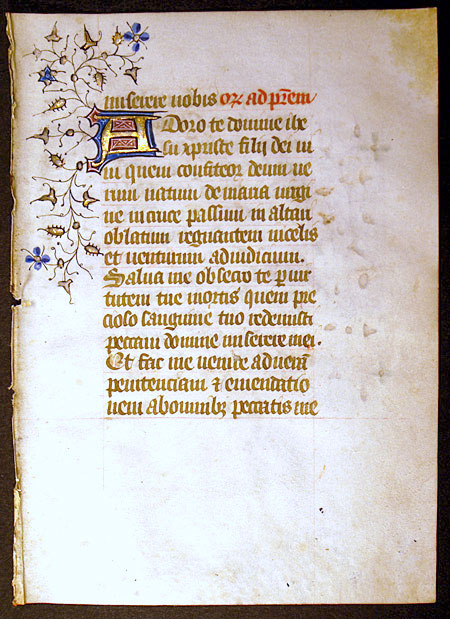 miserere nobis or ad prem
Adoro te domine ihe
su xpriste filij dei ui
ui quem confiteor deum ue
rum natum de maria uirgi
ne in cruce passum in altari
oblatum regnantem in celis
et uenturum ad iudicium.
Salua me obsecro te p uir
tutem tue mortis quem pre
cioso sanguine tuo redemisti
peccati domine miserere mei.
Et fac me uenire ad uerā
penitenciam ⁊ emendatio
nem ab omnibꝫ peccatis me